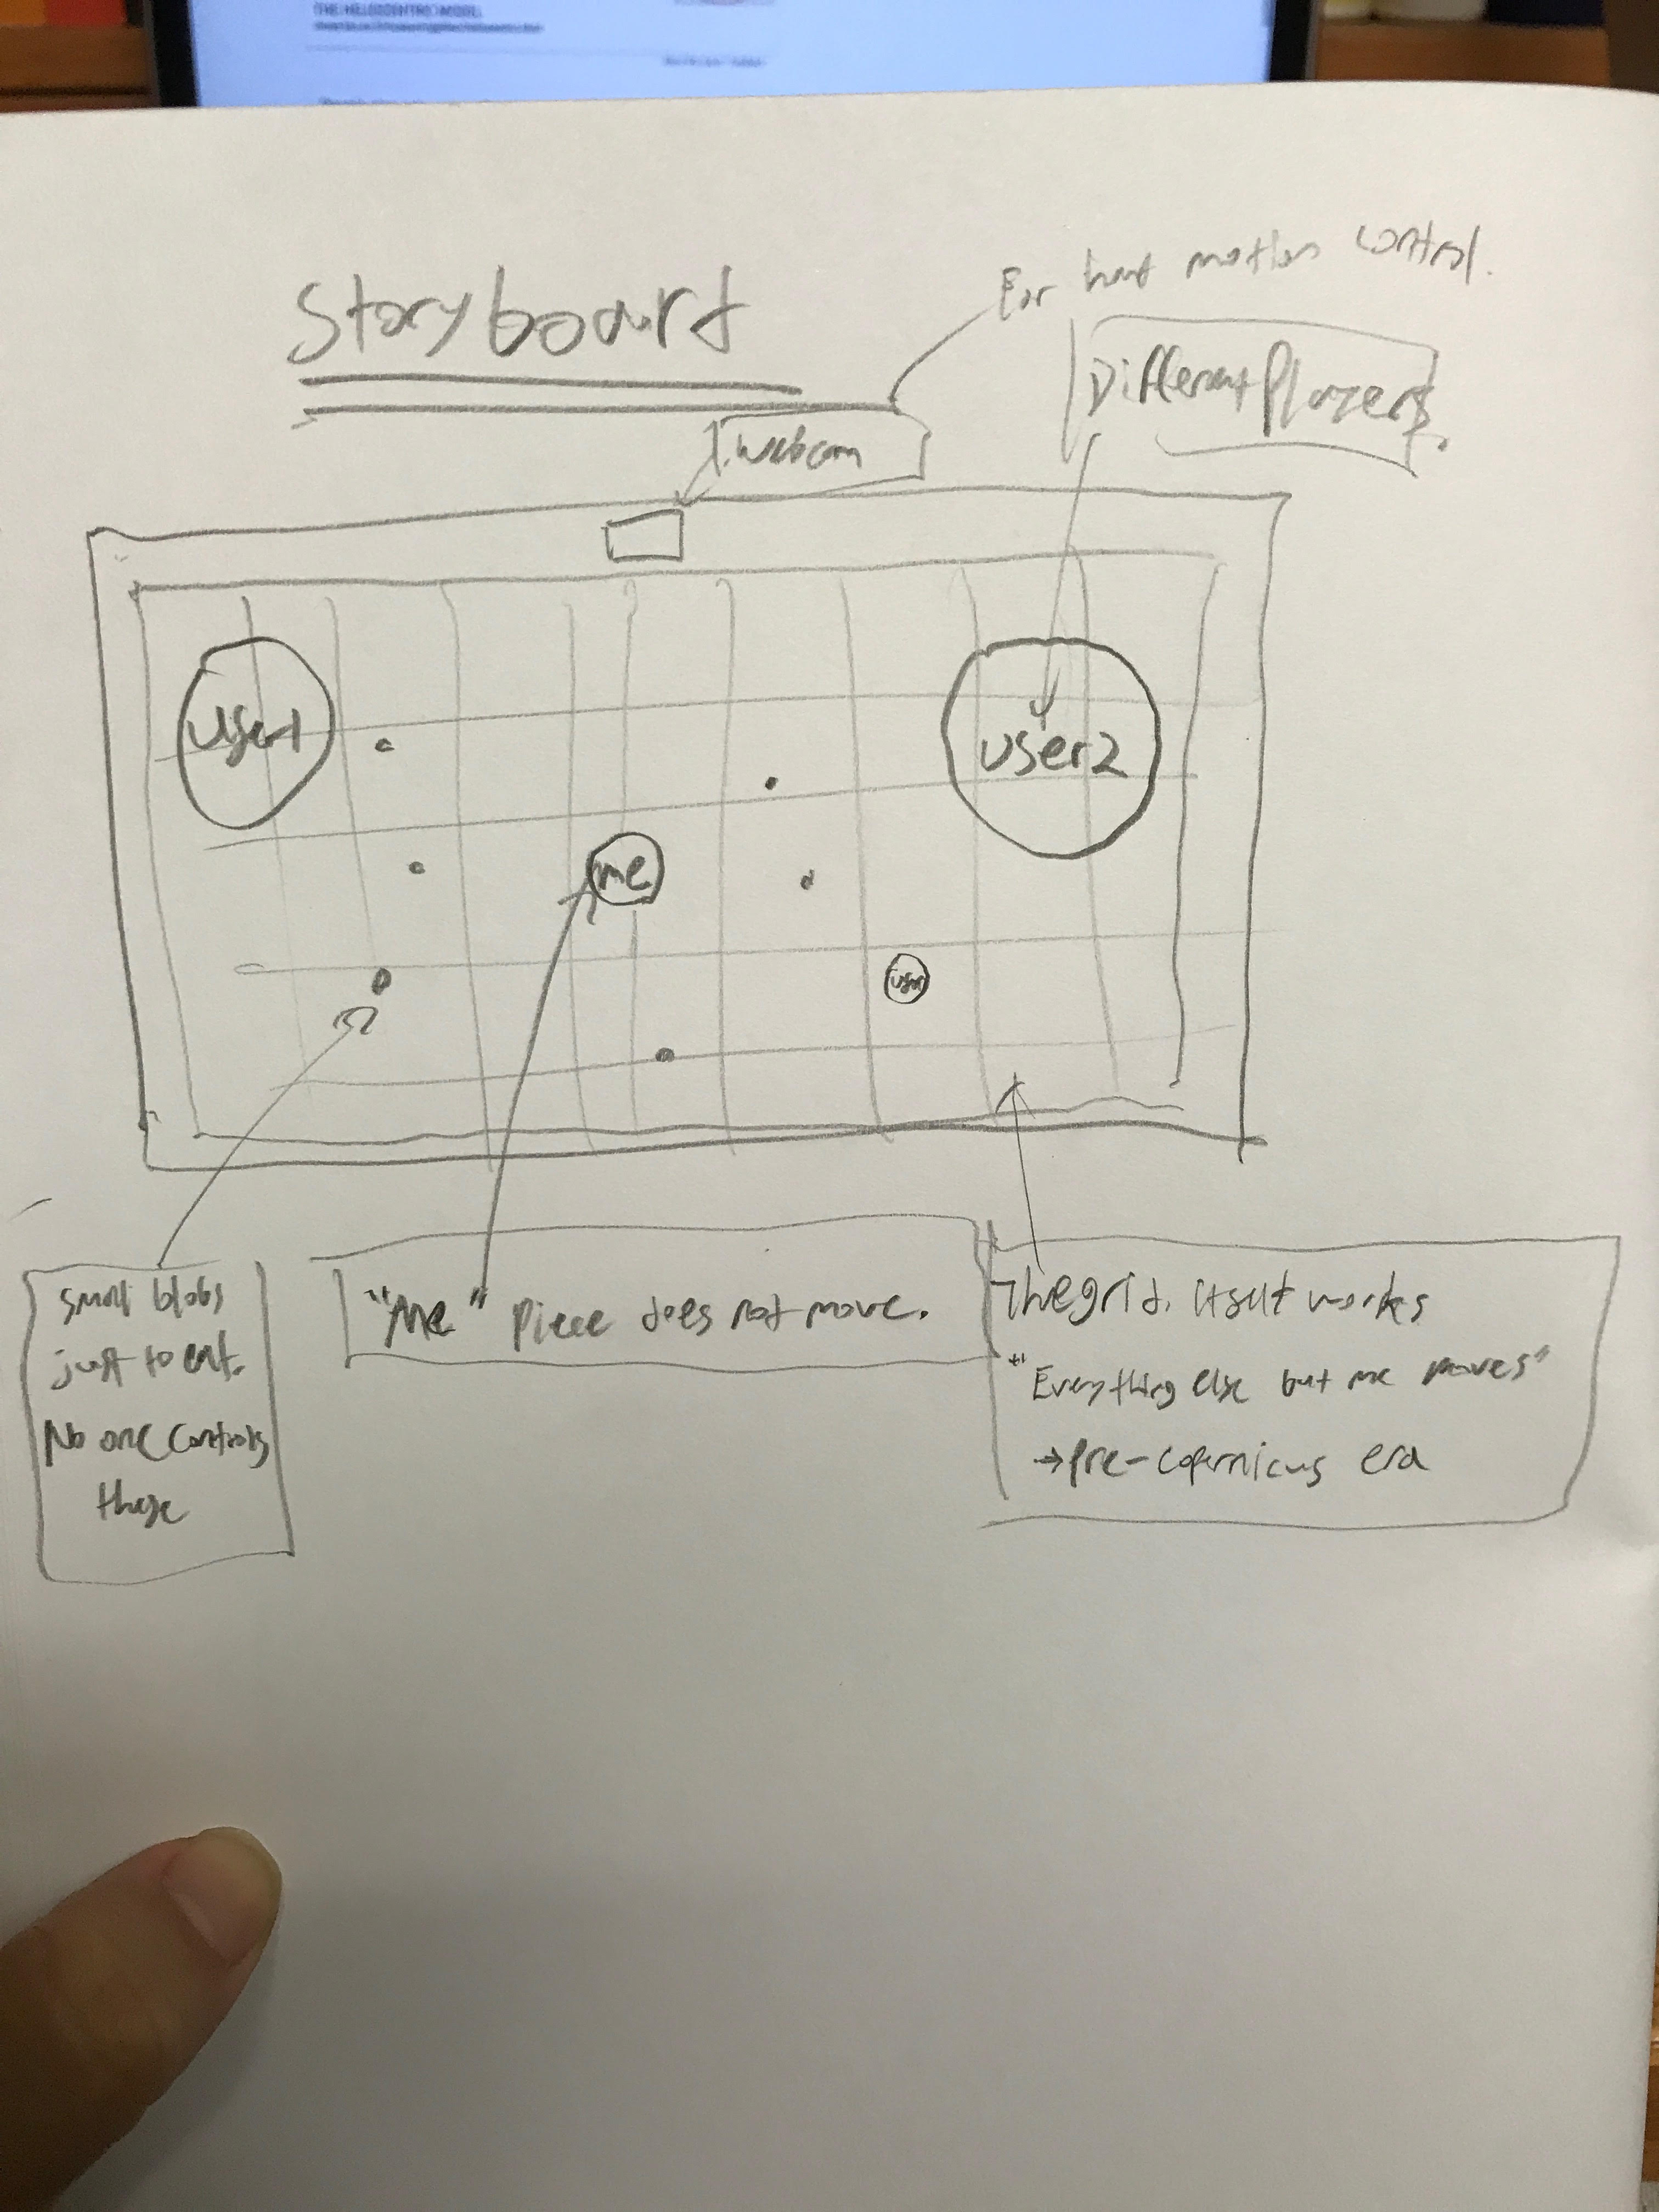 THE HELIOCENTRIC MODEL
Storyboard
For head motion control.
Different Players.
webcam
user1
user2
me
user
small blobs
just to eat.
No one controls
these
"Me" piece does not move.
The grid. itself works
"Everything else but me moves"
→ pre-copernicus era